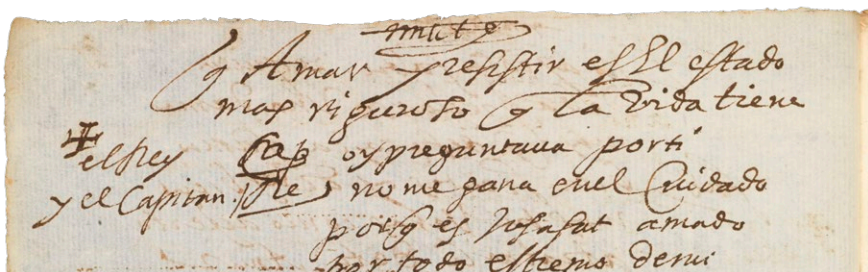 q Amar y resistir es El estado
mas riguroso q La Vida tiene
el Rey Cap oy preguntaua por ti
y el Capitan. Re no me gana en el Cuidado
porq es Josafat amado
por todo estremo de mi